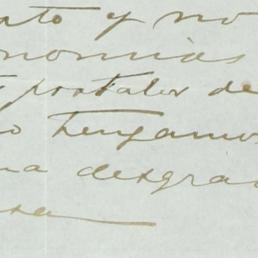 nto y no
onomias
postales de
o tengamos
na desgra
sa